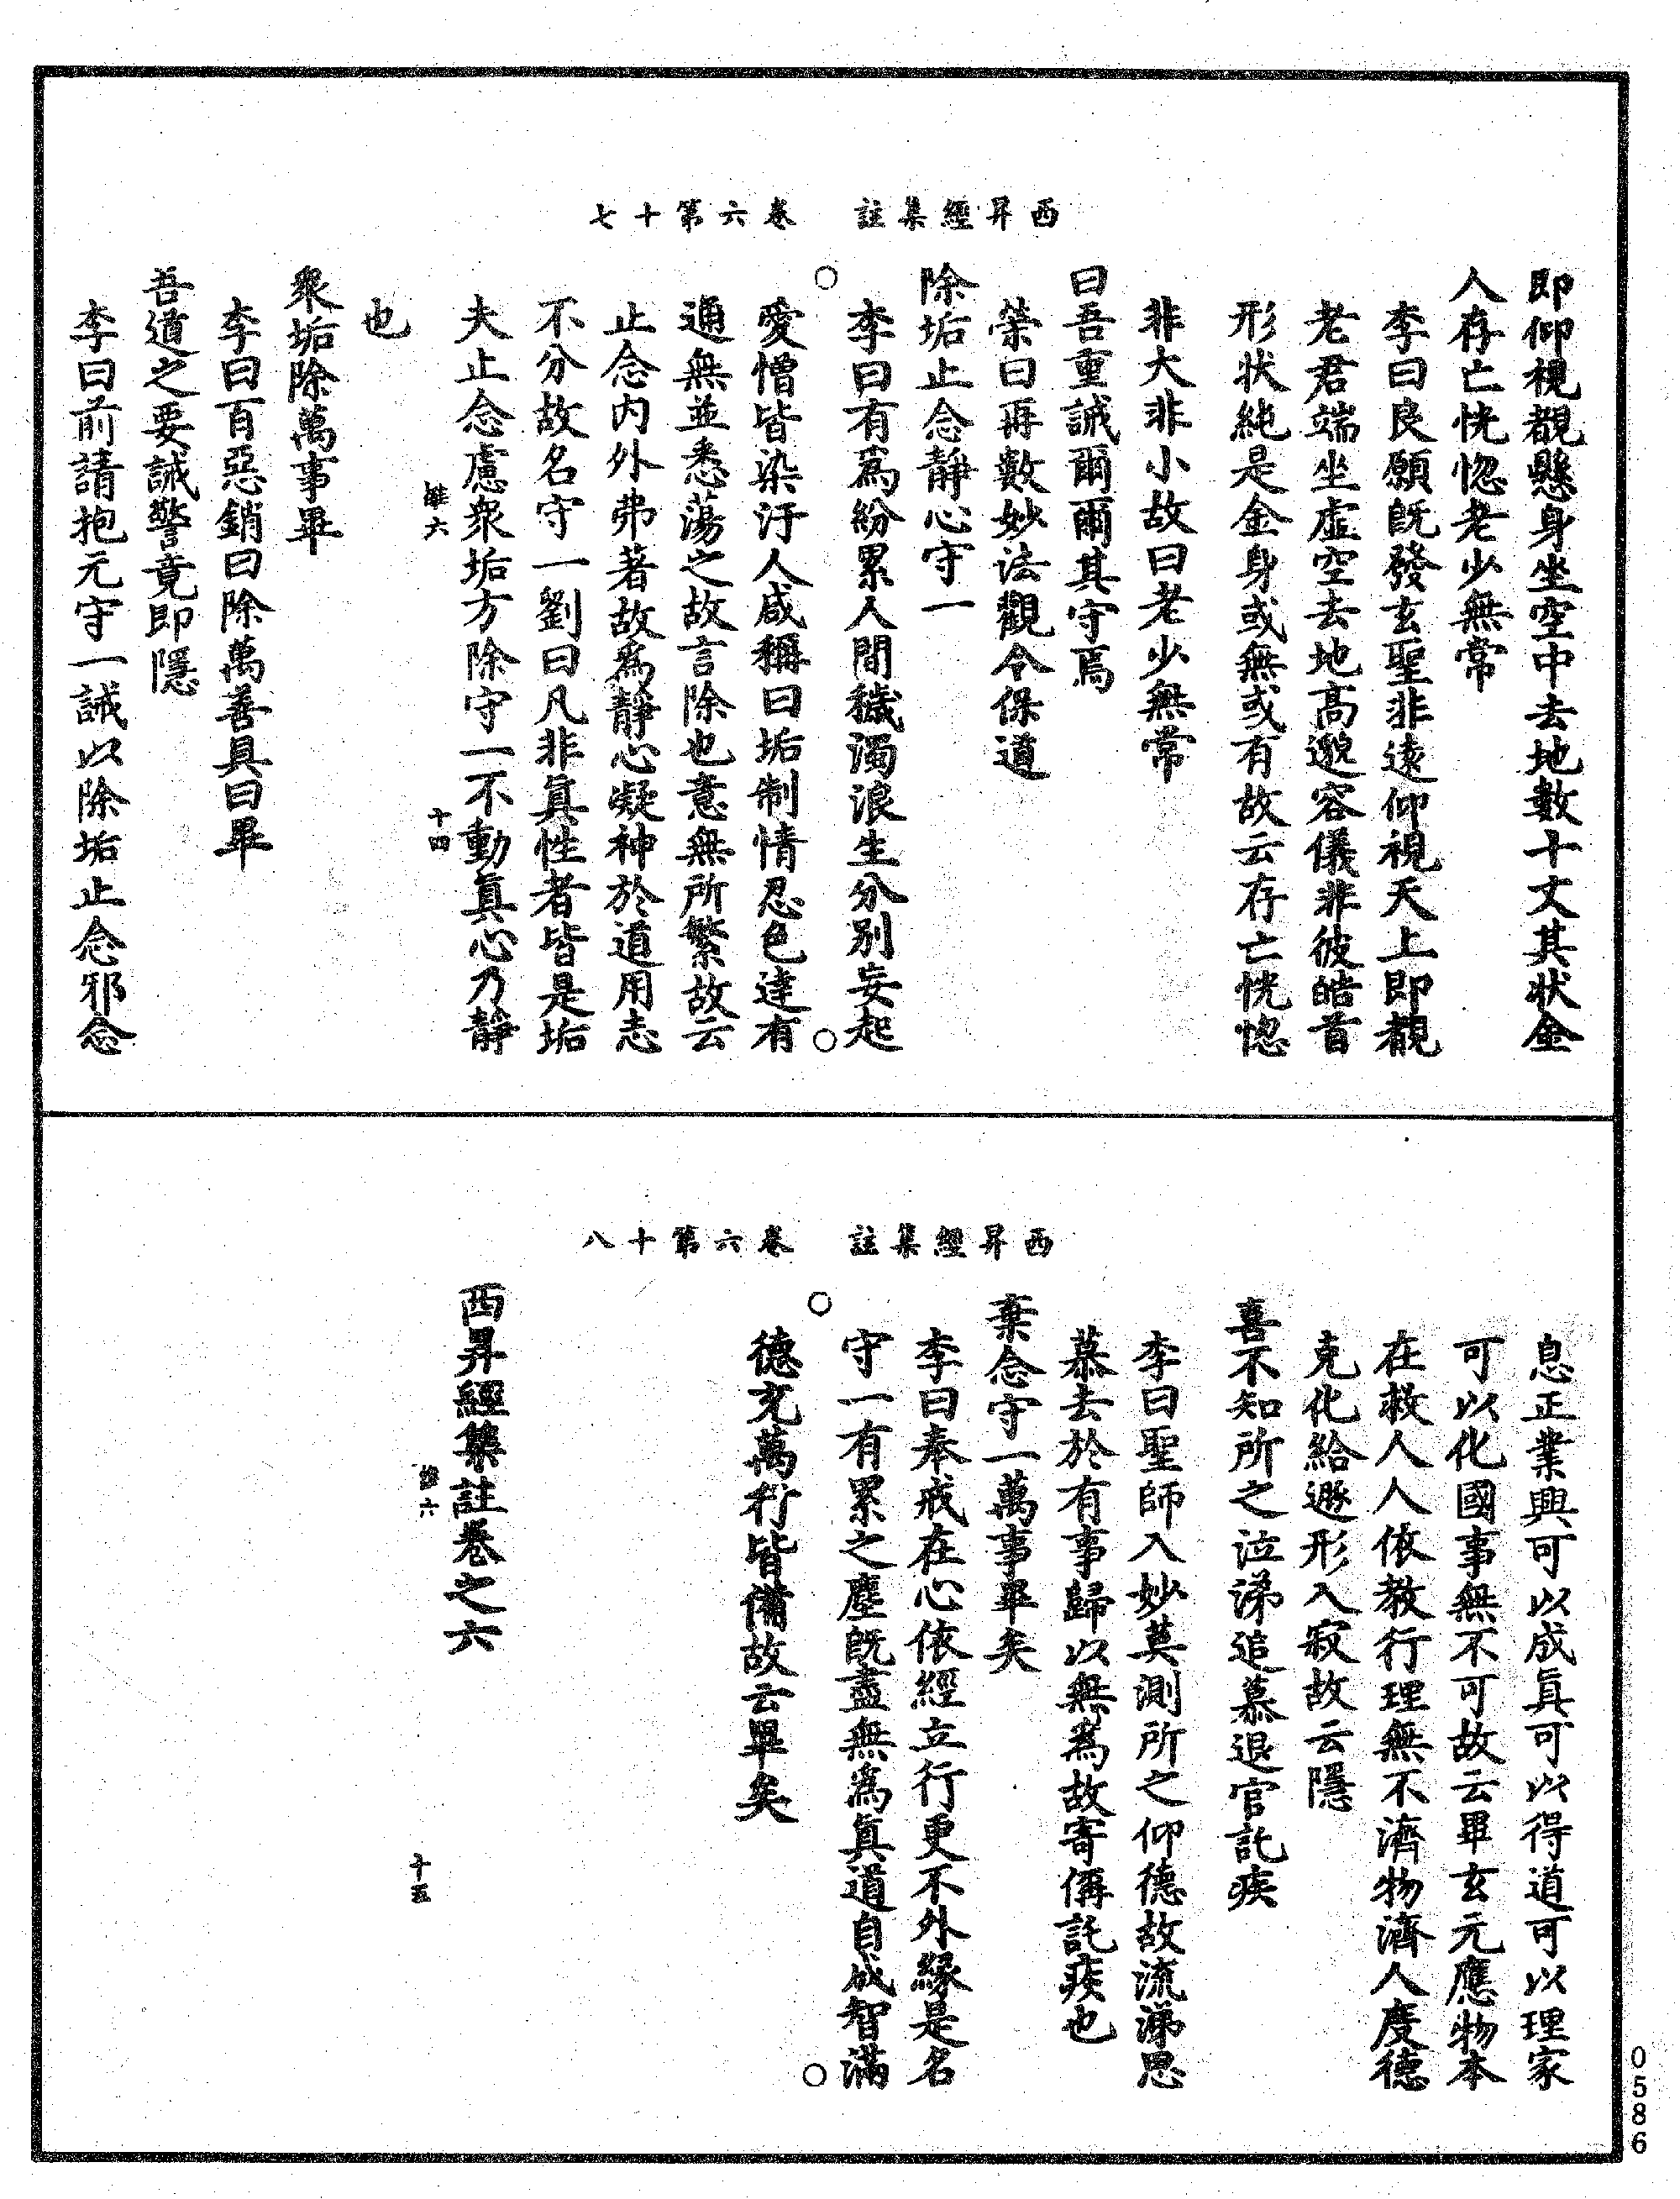 西昇經集註　卷六第十七
即仰視覩懸身坐空中去地數十丈其狀金
人存亡恍惚老少無常
李曰良願旣發玄聖非遠仰視天上即覩
老君端坐虛空去地高邈容儀非彼皓首
形狀純是金身或無或有故云存亡恍惚
非大非小故曰老少無常
曰吾重誡爾爾其守焉
榮曰再數妙法觀令保道
除垢止念靜心守一
李曰有爲紛累人間穢濁浪生分別妄起
愛憎皆染汙人咸稱曰垢制情忍色達有
通無並悉蕩之故言除也意無所繫故云
止念內外弗著故爲靜心凝神於道用志
不分故名守一劉曰凡非眞性者皆是垢
夫止念慮衆垢方除守一不動眞心乃靜
維六　十四
也
衆垢除萬事畢
李曰百惡銷曰除萬善具曰畢
吾道之要誡警竟即隱
李曰前請抱元守一誡以除垢止念邪念
西昇經集註　卷六第十八
息正業興可以成眞可以得道可以理家
可以化國事無不可故云畢玄元應物本
在救人人依教行理無不濟物濟人度德
克化給遯形入寂故云隱
喜不知所之泣涕追慕退官託疾
李曰聖師入妙莫測所之仰德故流涕思
慕去於有事歸以無爲故寄偁託疾也
棄念守一萬事畢矣
李曰奉戒在心依經立行更不外緣是名
守一有累之塵旣盡無爲眞道自成智滿
德充萬行皆備故云畢矣
西昇經集註卷之六
維六　十五
0586